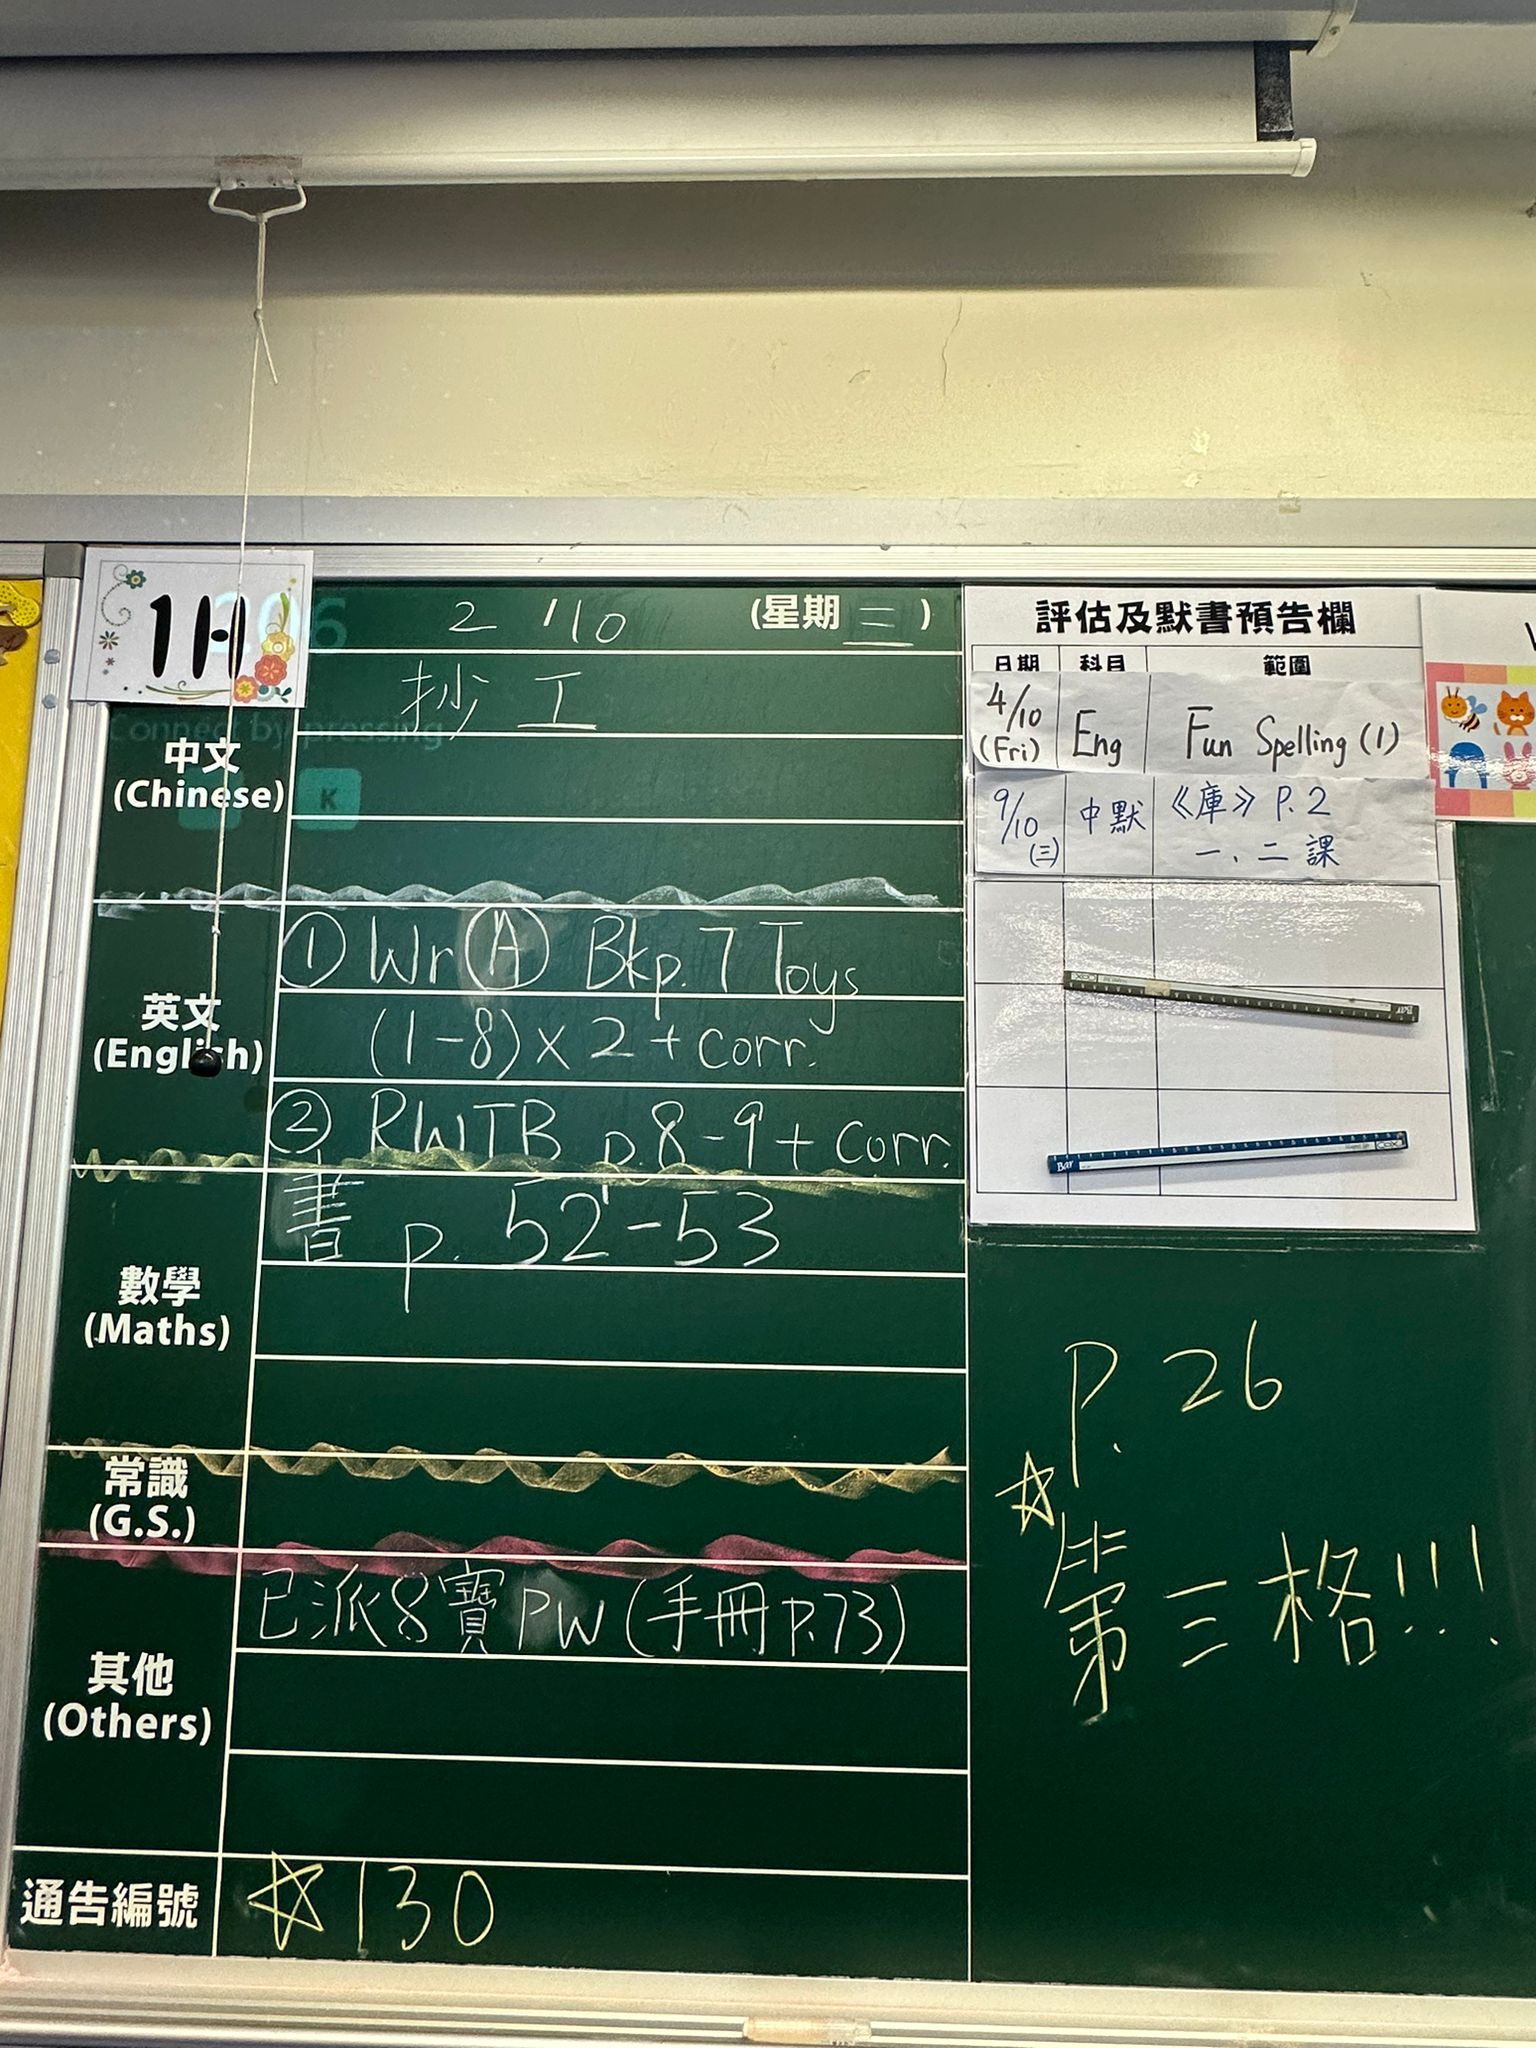 1H
206
2/10 (星期三)
Connect by pressing
K
中文
(Chinese)
抄工
英文
(English)
① Wr(A) Bk p.7 Toys
(1-8)×2+corr.
② RWTB p8-9+corr.
數學
(Maths)
書 p. 52-53
常識
(G.S.)
其他
(Others)
已派8寶PW(手冊P.73)
通告編號
☆130
評估及默書預告欄
日期 科目 範圍
4/10 (Fri) Eng Fun Spelling (1)
9/10 (三) 中默 《庫》P.2
一、二課
Bar
P. 26
☆第三格!!!